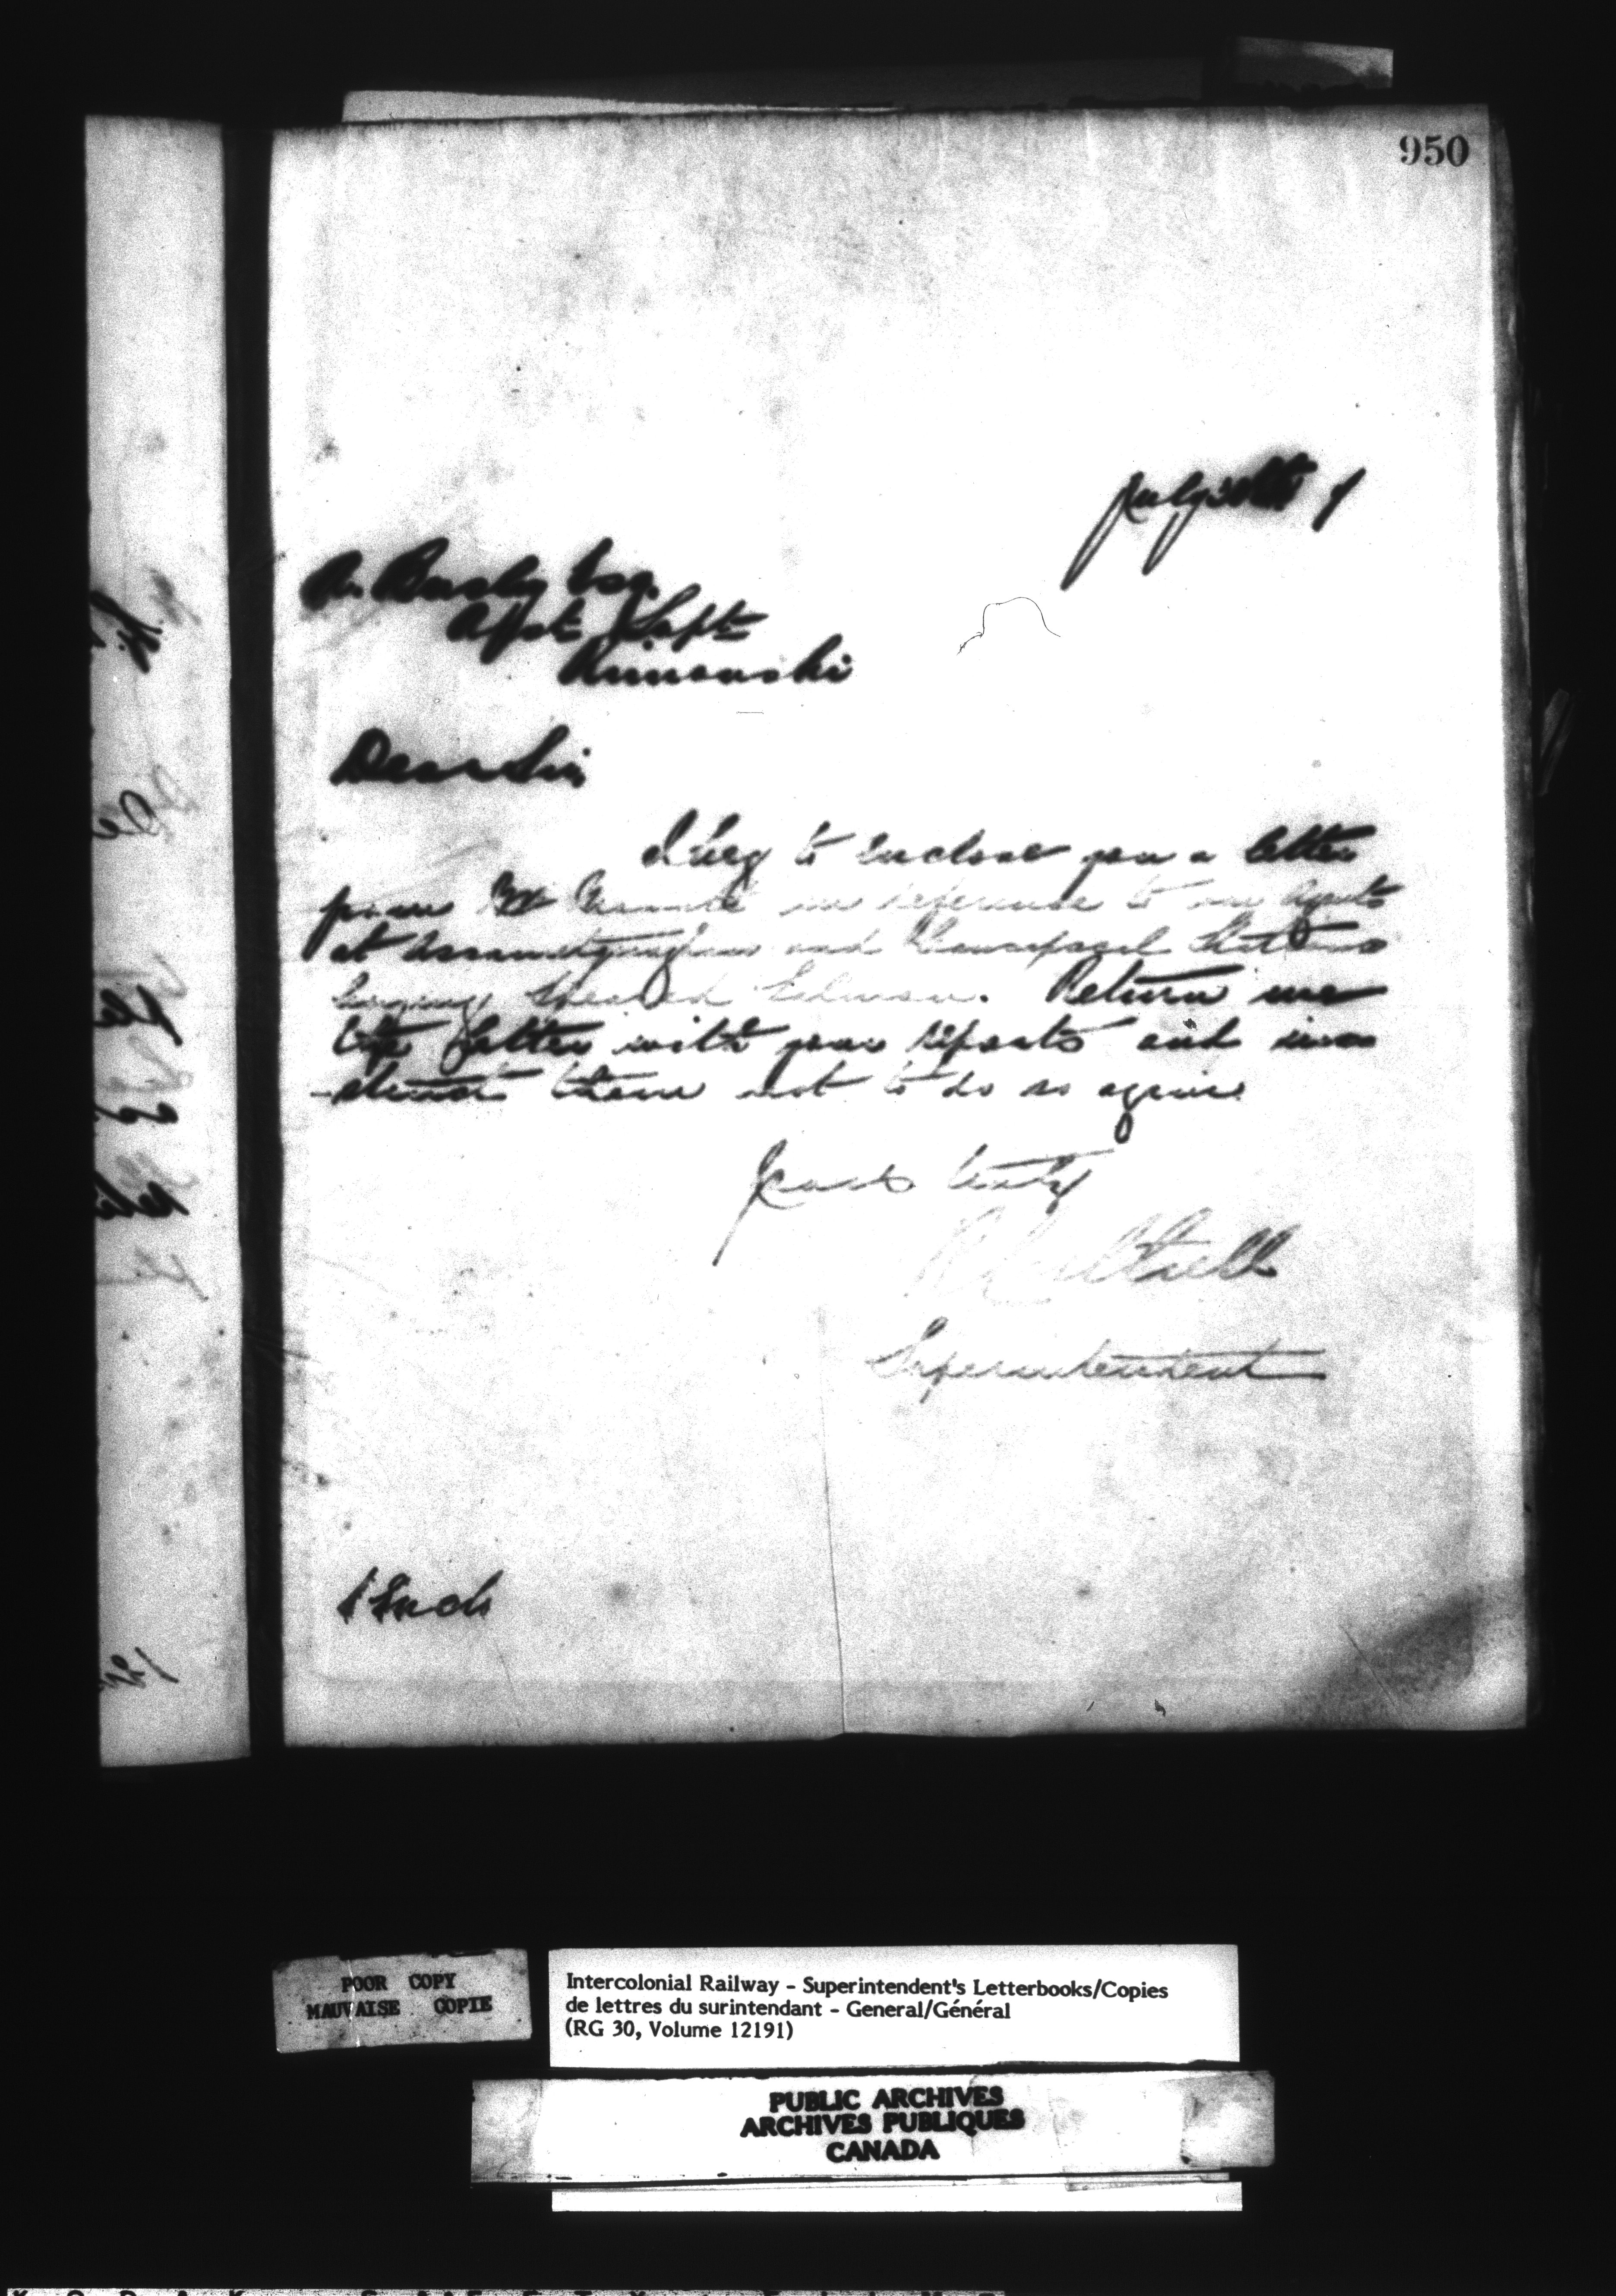 950
July
A. Busby Esq.
Asst Supt
Rimouski
Dear Sir
I beg to enclose you a letter
from Mr in reference to our agents
at Assametquaghan and Causapscal Stations
Speared Salmon. Return me
the letter with your reports and ins
-truct them not to do so again.
Yours truly
Superintendent
1 Encl
POOR COPY
MAUVAISE COPIE
Intercolonial Railway - Superintendent's Letterbooks/Copies
de lettres du surintendant - General/Général
(RG 30, Volume 12191)
PUBLIC ARCHIVES
ARCHIVES PUBLIQUES
CANADA